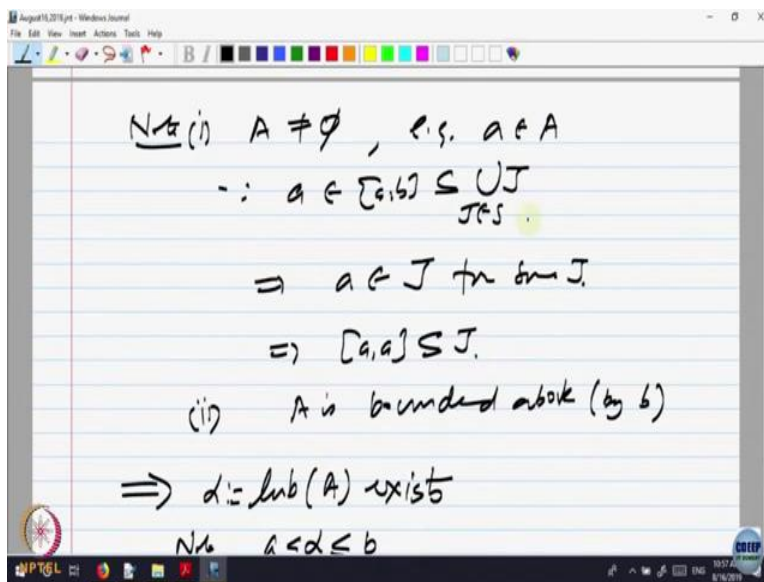 August16,2019.jnt - Windows Journal
File Edit View Insert Actions Tools Help
Note (i) A ≠ ∅, e.g. a ∈ A
∵ a ∈ [a,b] ⊆ ∪J
J∈S
⇒ a ∈ J for some J.
⇒ [a,a] ⊆ J.
(ii) A is bounded above (by b)
⇒ α := lub(A) exists
Note a < α ≤ b
NPTEL
CDEEP
IIT BOMBAY
ENG
10:57 AM
8/16/2019